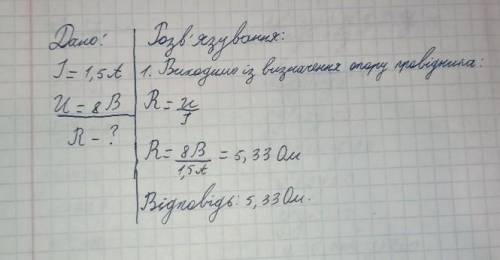 Дано:
I = 1,5 А
U = 8 В
R - ?
Розв'язування:
1. Виходимо із визначення опору провідника:
R = U/I
R = 8В/1,5А = 5,33 Ом
Відповідь: 5,33 Ом.